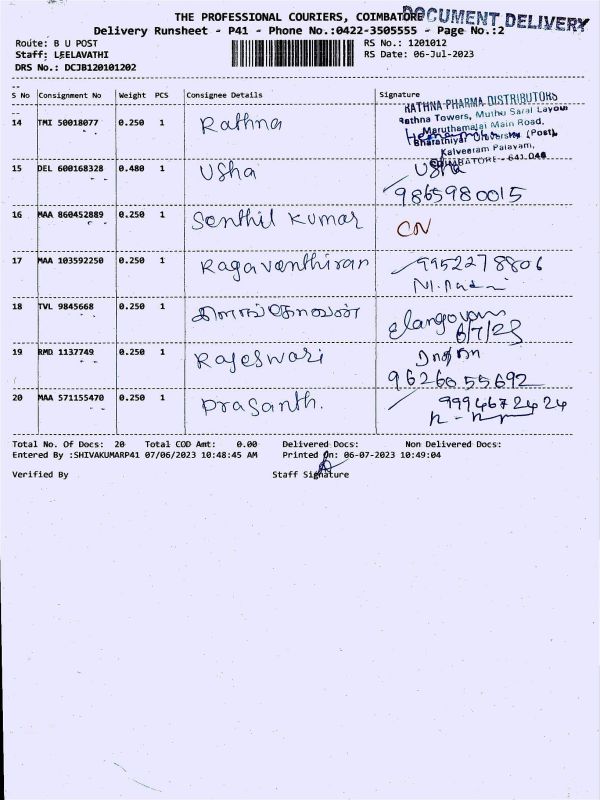 THE PROFESSIONAL COURIERS, COIMBATORE
DOCUMENT DELIVERY
Delivery Runsheet - P41 - Phone No.:0422-3505555 - Page No.:2
Route: B U POST RS No.: 1201012
Staff: LEELAVATHI RS Date: 06-Jul-2023
DRS No.: DCJB120101202
S No Consignment No Weight PCS Consignee Details Signature
RATHNA PHARMA DISTRIBUTORS
Rathna Towers, Muthu Saral Layout
Maruthamalai Main Road,
Bharathiyar University (Post),
Kalveeram Palayam,
COIMBATORE - 641 046
14 TMI 50018077 0.250 1 Rathna
15 DEL 600168328 0.480 1 Usha Usha
9865980015
16 MAA 860452889 0.250 1 Senthil Kumar CN
17 MAA 103592250 0.250 1 Ragavanthiran 9952278806
18 TVL 9845668 0.250 1 இளங்கோவன் elangovan
6/7/23
19 RMD 1137749 0.250 1 Rajeswari
9626055692
20 MAA 571155470 0.250 1 Prasanth. 9994672424
Total No. Of Docs: 20 Total COD Amt: 0.00 Delivered Docs: Non Delivered Docs:
Entered By :SHIVAKUMARP41 07/06/2023 10:48:45 AM Printed On: 06-07-2023 10:49:04
Verified By Staff Signature